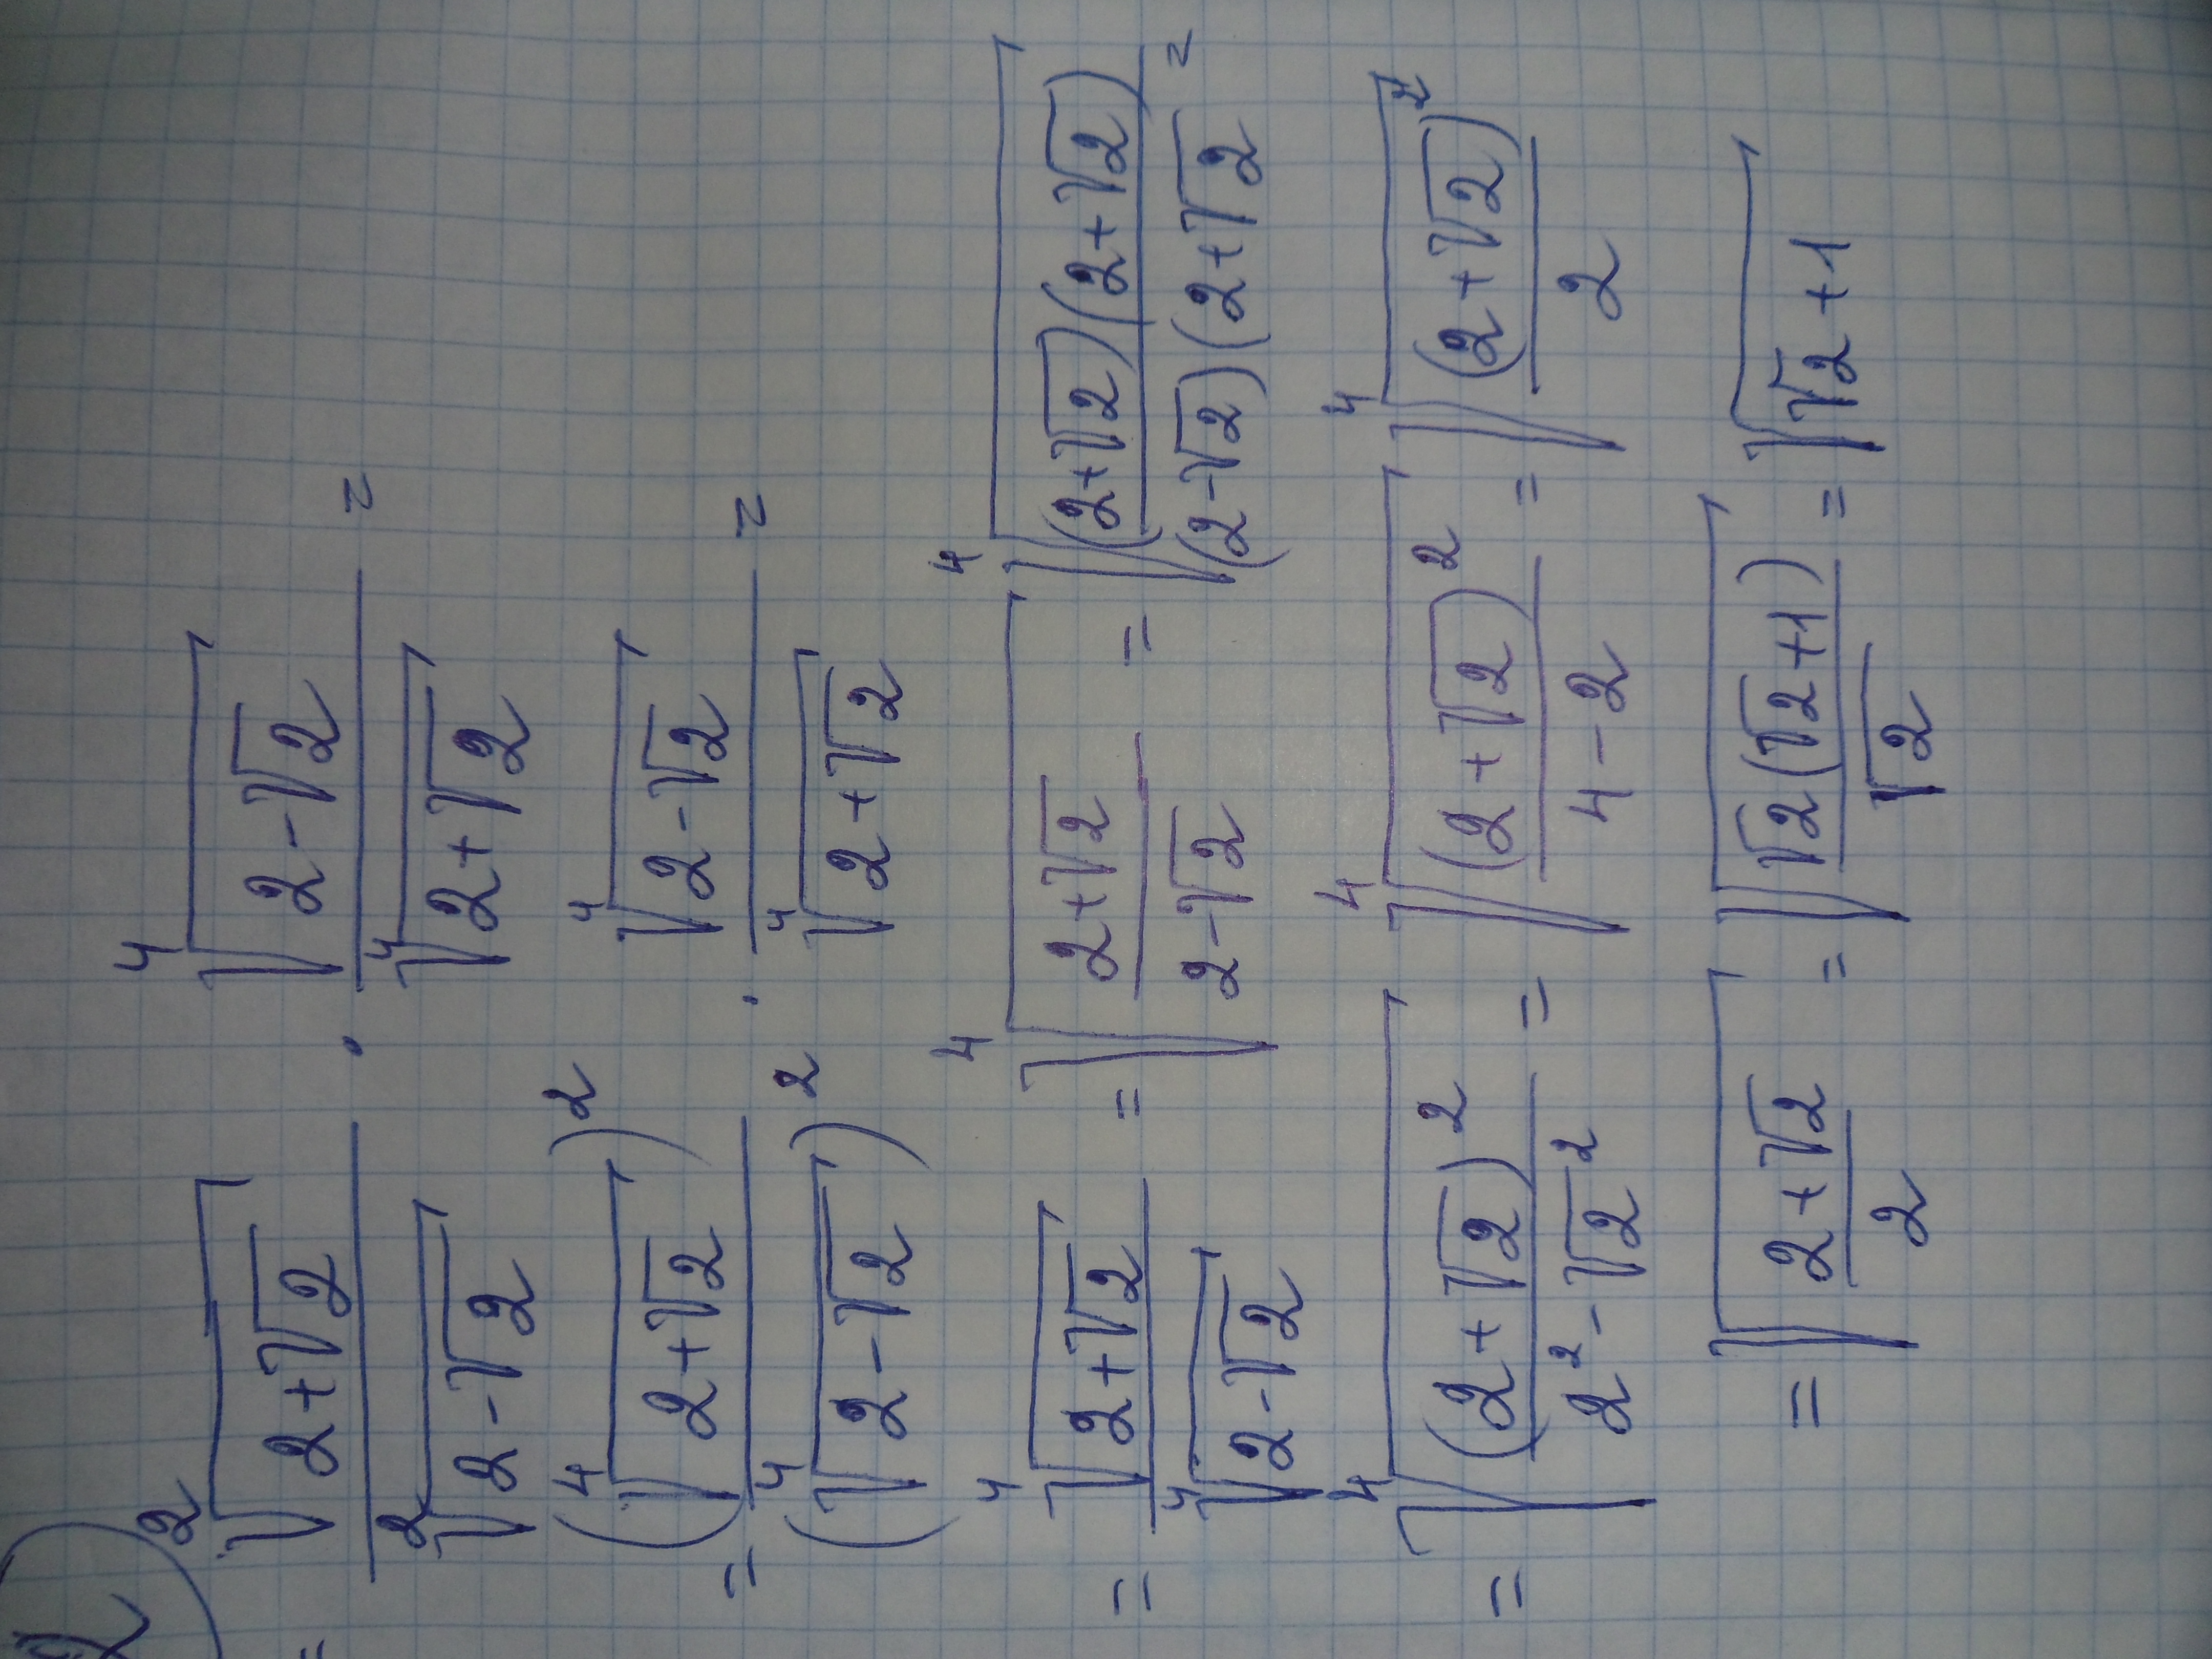 2)
= \frac{\sqrt[2]{2+\sqrt{2}}}{\sqrt[2]{2-\sqrt{2}}} \cdot \frac{\sqrt[4]{2-\sqrt{2}}}{\sqrt[4]{2+\sqrt{2}}} =
= \frac{(\sqrt[4]{2+\sqrt{2}})^2}{(\sqrt[4]{2-\sqrt{2}})^2} \cdot \frac{\sqrt[4]{2-\sqrt{2}}}{\sqrt[4]{2+\sqrt{2}}} =
= \frac{\sqrt[4]{2+\sqrt{2}}}{\sqrt[4]{2-\sqrt{2}}} = \sqrt[4]{\frac{2+\sqrt{2}}{2-\sqrt{2}}} = \sqrt[4]{\frac{(2+\sqrt{2})(2+\sqrt{2})}{(2-\sqrt{2})(2+\sqrt{2}}} =
= \sqrt[4]{\frac{(2+\sqrt{2})^2}{2^2-\sqrt{2}^2}} = \sqrt[4]{\frac{(2+\sqrt{2})^2}{4-2}} = \sqrt[4]{\frac{(2+\sqrt{2})^2}{2}}
= \sqrt{\frac{2+\sqrt{2}}{2}} = \sqrt{\frac{\sqrt{2}(\sqrt{2}+1)}{\sqrt{2}}} = \sqrt{\sqrt{2}+1}